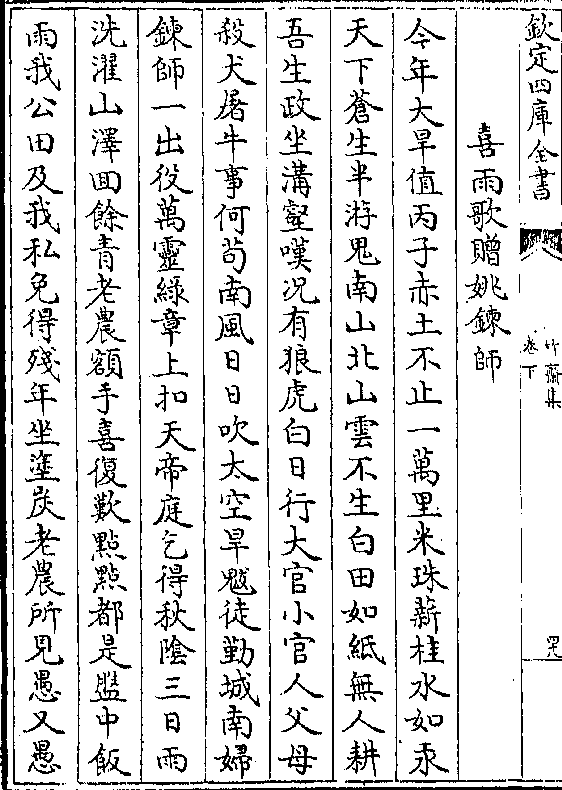 欽定四庫全書
竹齋集
卷下
喜雨歌贈姚鍊師
今年大旱值丙子赤土不止一萬里米珠薪桂水如汞
天下蒼生半游鬼南山北山雲不生白田如紙無人耕
吾生政坐溝壑嘆況有狼虎白日行大官小官人父母
殺犬屠牛事何茍南風日日吹太空旱魃徒勤城南婦
鍊師一出役萬靈綠章上扣天帝庭乞得秋陰三日雨
洗濯山澤回餘青老農額手喜復歎點點都是盤中飯
雨我公田及我私免得殘年坐塗炭老農所見愚又愚